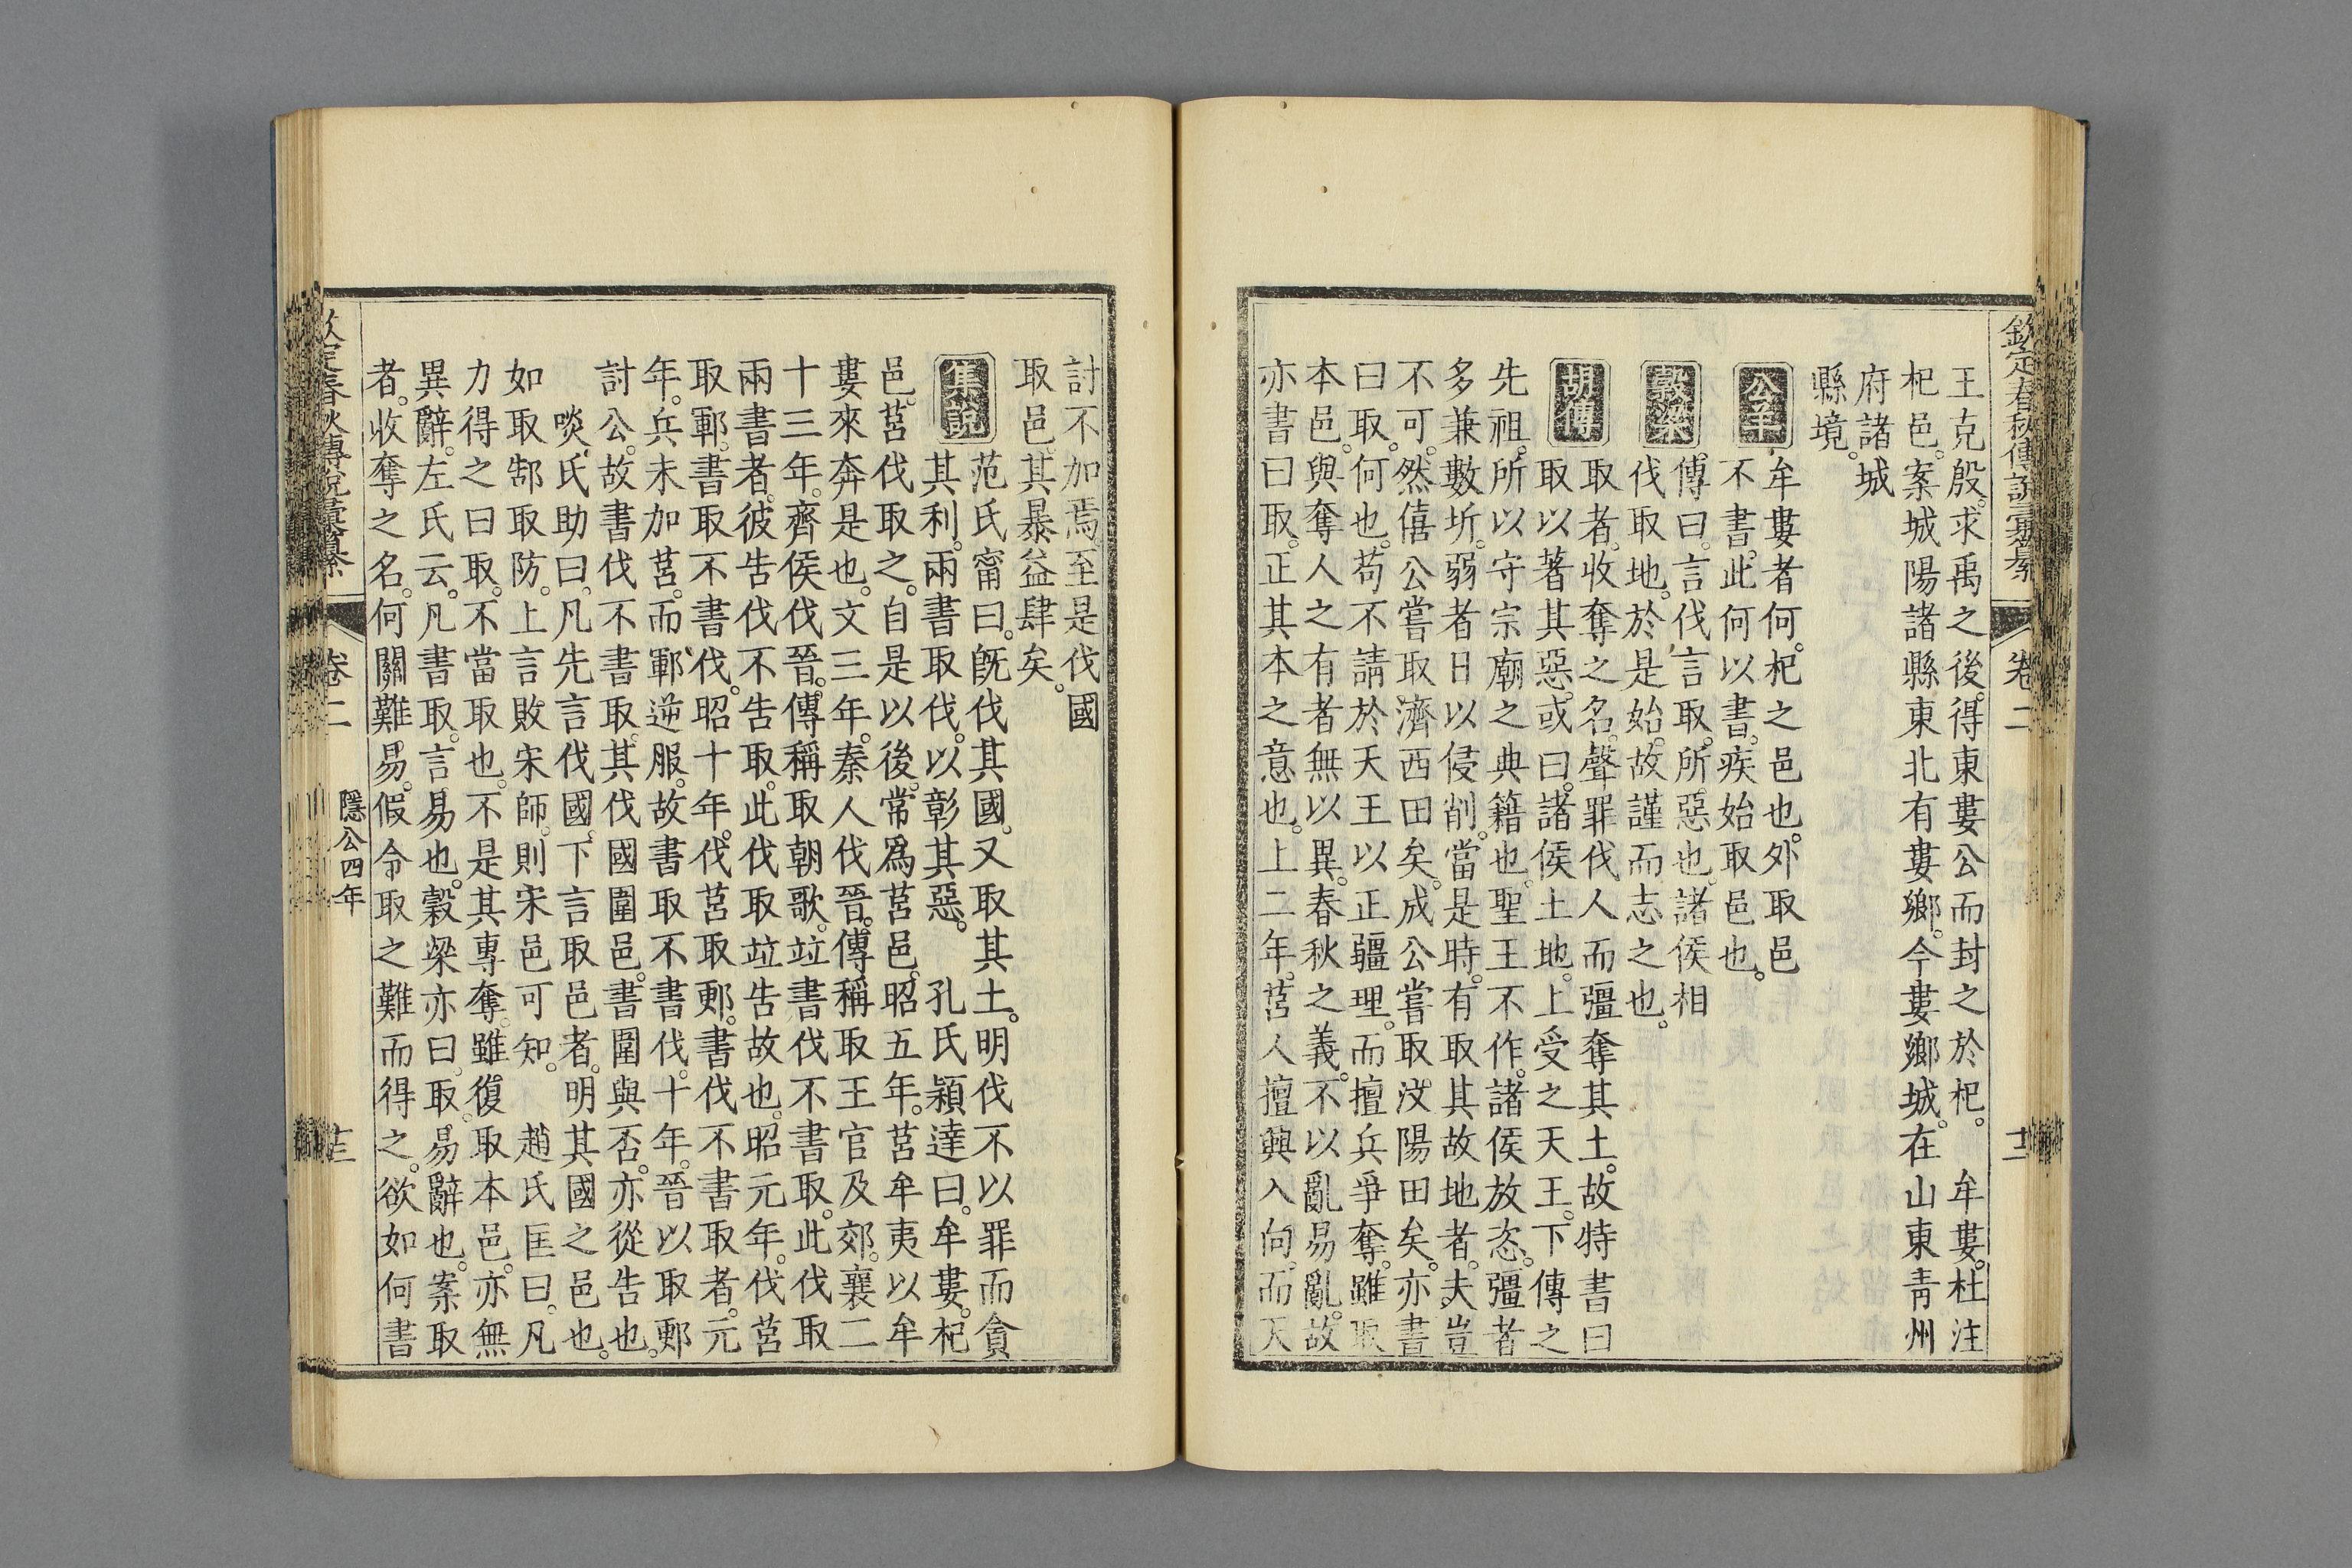 欽定春秋傳說彙纂 卷二 十二
王克殷。求禹之後。得東婁公而封之於杞。 牟婁。杜注
杞邑。案城陽諸縣東北有婁鄉。今婁鄉城。在山東青州
府諸城
縣境。
公羊 牟婁者何。杞之邑也。外取邑
不書。此何以書。疾始取邑也。
穀梁 傳曰。言伐言取。所惡也。諸侯相
伐取地。於是始。故謹而志之也。
胡傳 取者。收奪之名。聲罪伐人而彊奪其土。故特書曰
取以著其惡。或曰。諸侯土地。上受之天王。下傳之
先祖。所以守宗廟之典籍也。聖王不作。諸侯放恣。彊者
多兼數圻。弱者日以侵削。當是時。有取其故地者。夫豈
不可。然僖公嘗取濟西田矣。成公嘗取汶陽田矣。亦書
曰取。何也。苟不請於天王以正疆理。而擅兵爭奪。雖取
本邑。與奪人之有者無以異。春秋之義。不以亂易亂。故
亦書曰取。正其本之意也。上二年。莒人擅興入向。而天
討不加焉。至是伐國
取邑。其暴益肆矣。
集說 范氏甯曰。旣伐其國。又取其土。明伐不以罪而貪
其利。兩書取伐。以彰其惡。 孔氏穎達曰。牟婁。杞
邑。莒伐取之。自是以後。常爲莒邑。昭五年。莒牟夷以牟
婁來奔是也。文三年。秦人伐晉。傳稱取王官及郊。襄二
十三年。齊侯伐晉。傳稱取朝歌。竝書伐不書取。此伐取
兩書者。彼告伐不告取。此伐取竝告故也。昭元年。伐莒
取鄆。書取不書伐。昭十年。伐莒取郠。書伐不書取者。元
年。兵未加莒。而鄆逆服。故書取不書伐。十年。晉以取郠
討公。故書伐不書取。其伐國圍邑。書圍與否。亦從告也。
啖氏助曰。凡先言伐國。下言取邑者。明其國之邑也。
如取郜取防。上言敗宋師。則宋邑可知。 趙氏匡曰。凡
力得之曰取。不當取也。不是其專奪。雖復取本邑。亦無
異辭。左氏云。凡書取。言易也。穀梁亦曰。取。易辭也。案取
者。收奪之名。何關難易。假令取之難而得之。欲如何書
春秋傳說彙纂 卷二 隱公四年 十三